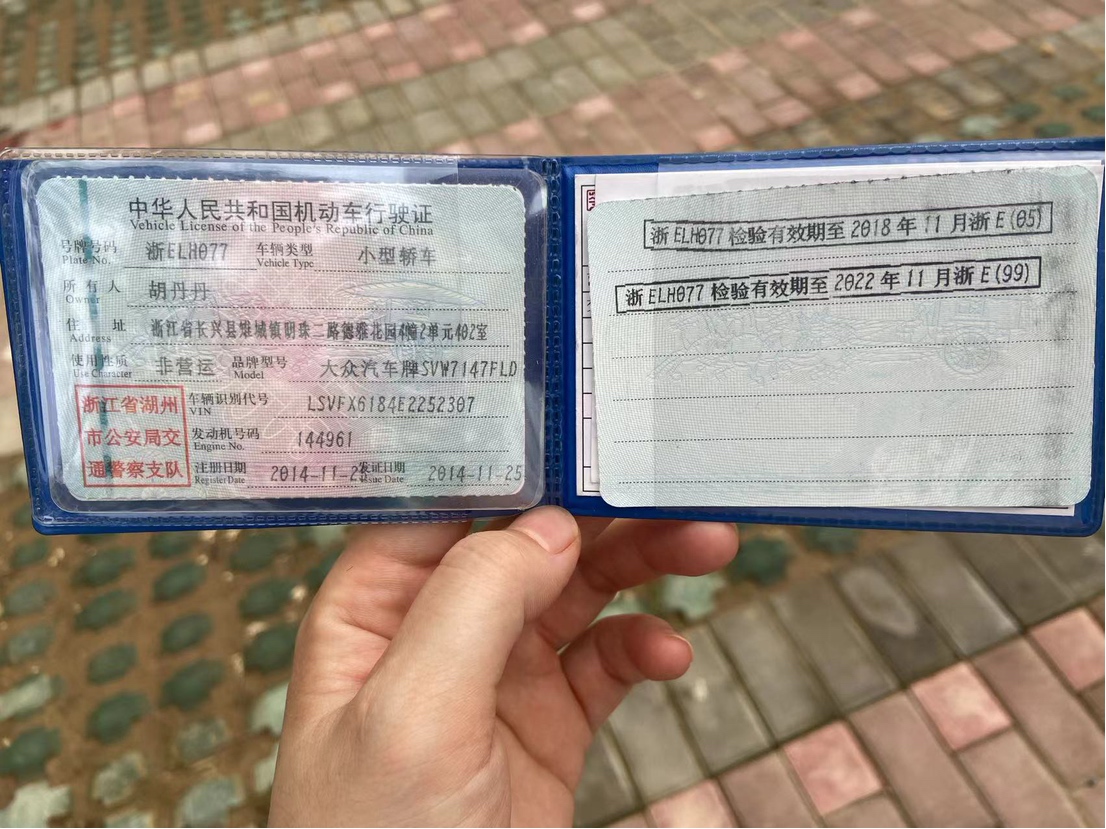 中华人民共和国机动车行驶证
Vehicle License of the People's Republic of China
号牌号码 浙ELH077 车辆类型 小型轿车
Plate No. Vehicle Type
所有人 胡丹丹
Owner
住址 浙江省长兴县雉城镇明珠二路德雅花园4幢2单元402室
Address
使用性质 非营运 品牌型号 大众汽车牌SVW7147FLD
Use Character Model
浙江省湖州
市公安局交
通警察支队
车辆识别代号 LSVFX6184E2252307
VIN
发动机号码 144961
Engine No.
注册日期 2014-11-2 发证日期 2014-11-25
Register Date Issue Date
浙ELH077检验有效期至2018年11月浙E(05)
浙ELH077检验有效期至2022年11月浙E(99)